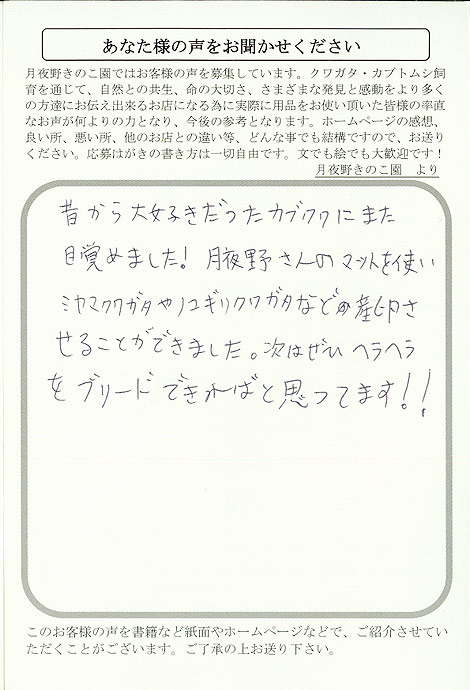 あなた様の声をお聞かせください
月夜野きのこ園ではお客様の声を募集しています。クワガタ・カブトムシ飼
育を通じて、自然との共生、命の大切さ、さまざまな発見と感動をより多く
の方達にお伝え出来るお店になる為に実際に用品をお使い頂いた皆様の率直
なお声が何よりの力となり、今後の参考となります。ホームページの感想、
良い所、悪い所、他のお店との違い等、どんな事でも結構ですので、お送り
ください。応募はがきの書き方は一切自由です。文でも絵でも大歓迎です！
月夜野きのこ園 より
昔から大好きだったカブクワにまた
目覚めました! 月夜野さんのマットを使い
ミヤマクワガタやノコギリクワガタなどの産卵さ
せることができました。次はぜひヘラヘラ
をブリードできればと思ってます!!
このお客様の声を書籍など紙面やホームページなどで、ご紹介させてい
ただくことがございます。ご了承の上お送り下さい。